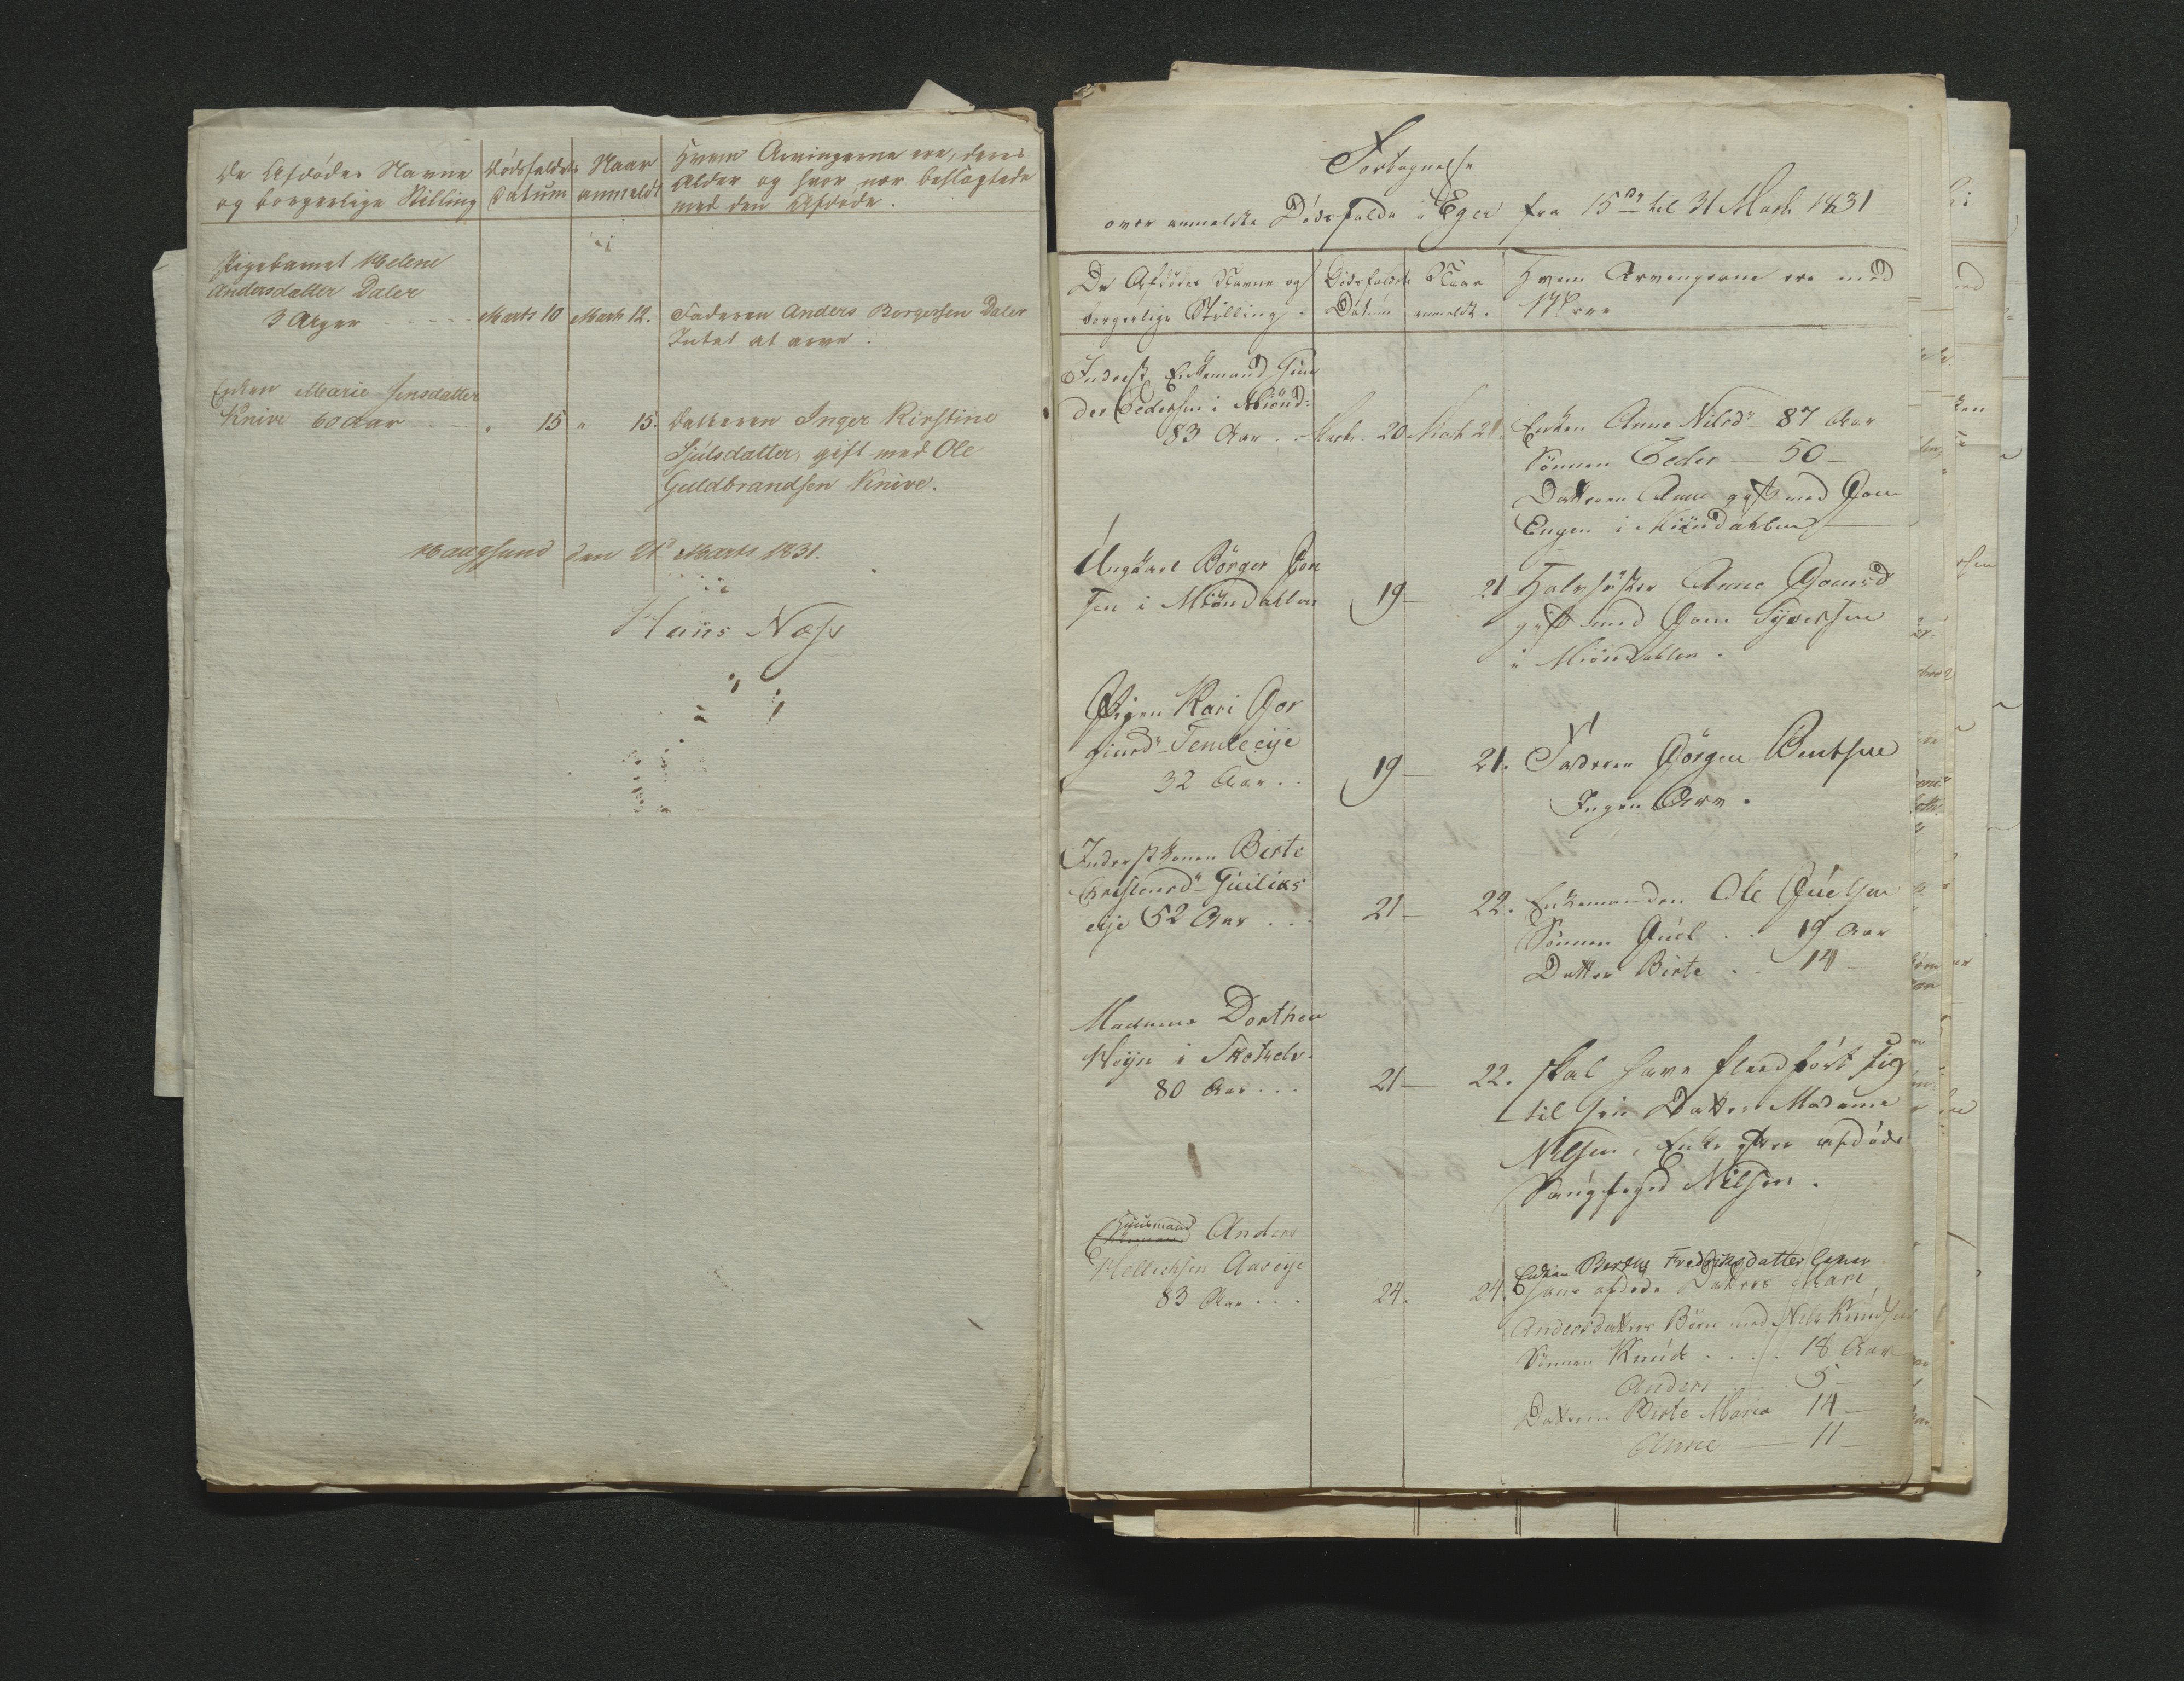 De Afdødes Navne
og borgerlige Stilling
Dødsfaldets
Datum
Naar
anmeldt
Hvem Arvingerne ere, deres
Alder og hvor nær beslægtede
med den Afdøde.
Pigebarnet Helene
Andersdatter Daler
3 Uger - - - - Marts 10 Marts 12. Faderen Anders Borgersen Daler
Intet at arve.
Enken Marie Jensdatter
Knive 60 Aar - - " 15 " 15. Datteren Inger Kirstine
Sjulsdatter, gift med Ole
Guldbrandsen Knive.
Haugsund den 21 Marts 1831.
Hans Næss
Fortegnelse
over anmeldte Dødsfalde i Eger fra 15de til 31 Marts 1831
De Afdødes Navne og
borgerlige Stilling.
Dødsfaldets
Datum
Naar
anmeldt.
Hvem Arvingerne ere med
Inderst Enkemand Gun
der Pedersen i Miønd:
83 Aar . . Marts. 20 Marts 21. Enken Anne Nilsd: 87 Aar
Sønnen Peder — 50 —
Datteren Anne gift med Joen
Engen i Miøndahlen —
Ungkarl Børger Jon
sen i Miøndahlen 19 — 21 Halvsøster Anne Joensd
gift med Joen Syversen
i Miøndahlen.
Pigen Kari Jør
gensd: Temteeije
32 Aar . . 19 — 21. Faderen Jørgen Bentsen
Ingen Arv.
Inderstkonen Birte
Christensd: Guilixs
eije 52 Aar . . . 21 — 22. Enkemanden Ole Juelsen
Sønnen Juel . . 19 Aar
Datter Birte . . 14
Madame Dorthea
Heyn i Skotselv.
80 Aar . . . 21 — 22. skal have fledført sig
til sin Datter Madame
Nilsen, Enke efter afdøde
Saugfoged Nilsen.
Huusmand Anders
Hellechsen Aaseije
83 Aar . . . 24. 24. Enken Berthe Fredriksdatter
hans afdøde Datter Mari
Andersdatters Børn med Nils Knudsen
Sønnen Knud . . . . 18 Aar
Anders 5 —
Datteren Birte Maria 14 —
Anne — 11 —